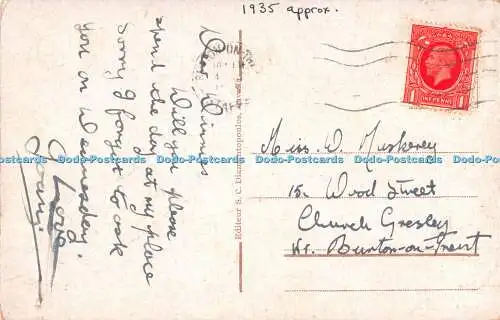 1935 approx.
Dear Winnie
Will you please
spend the day at my place
Sorry I forgot to ask
you on Wednesday.
Love
Editeur S. C. Diamantopoulos,
ONE PENNY
1 1
Miss. W.
15, Wood Street
Church Gresley
Nr. Burton-on-Trent
Data-Postcards Data-Postcards Data-Postcards Data-Postcards Data-Postcards Data-Postcards